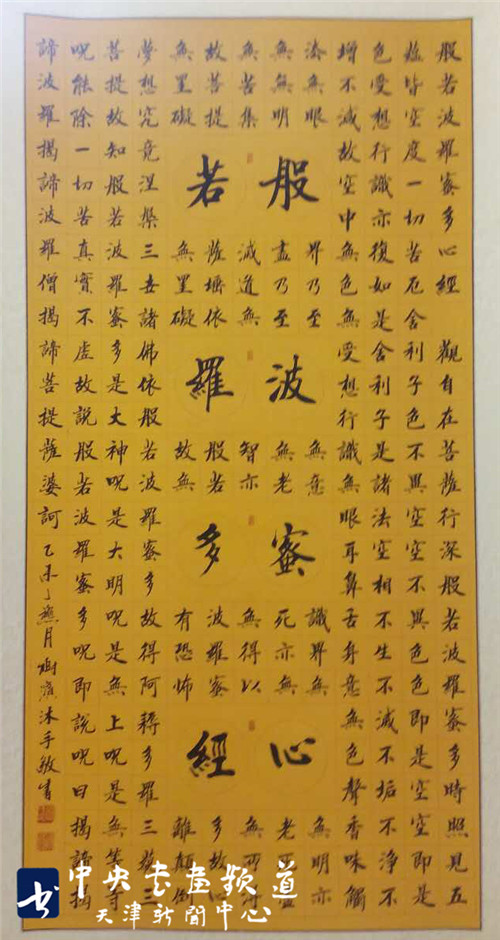 般若波羅蜜多心經 觀自在菩薩行深般若波羅蜜多時照見五
蘊皆空度一切苦厄舍利子色不異空空不異色色即是空空即是
色受想行識亦復如是舍利子是諸法空相不生不滅不垢不淨不
增不減故空中無色無受想行識無眼耳鼻舌身意無色聲香味觸
法無眼界乃至無意識界無無明亦
無無明盡乃至無老死亦無老死盡
無苦集滅道無智亦無得以無所得
故菩提薩埵依般若波羅蜜多故心
無罣礙無罣礙故無有恐怖離顛倒
般若
波羅
蜜多
心經
夢想究竟涅槃三世諸佛依般若波羅蜜多故得阿耨多羅三藐三
菩提故知般若波羅蜜多是大神呪是大明呪是無上呪是無等等
呪能除一切苦真實不虛故說般若波羅蜜多呪即說呪曰揭諦揭
諦波羅揭諦波羅僧揭諦菩提薩婆訶 乙未 月 沐手敬書
中央书画频道
天津新聞中心